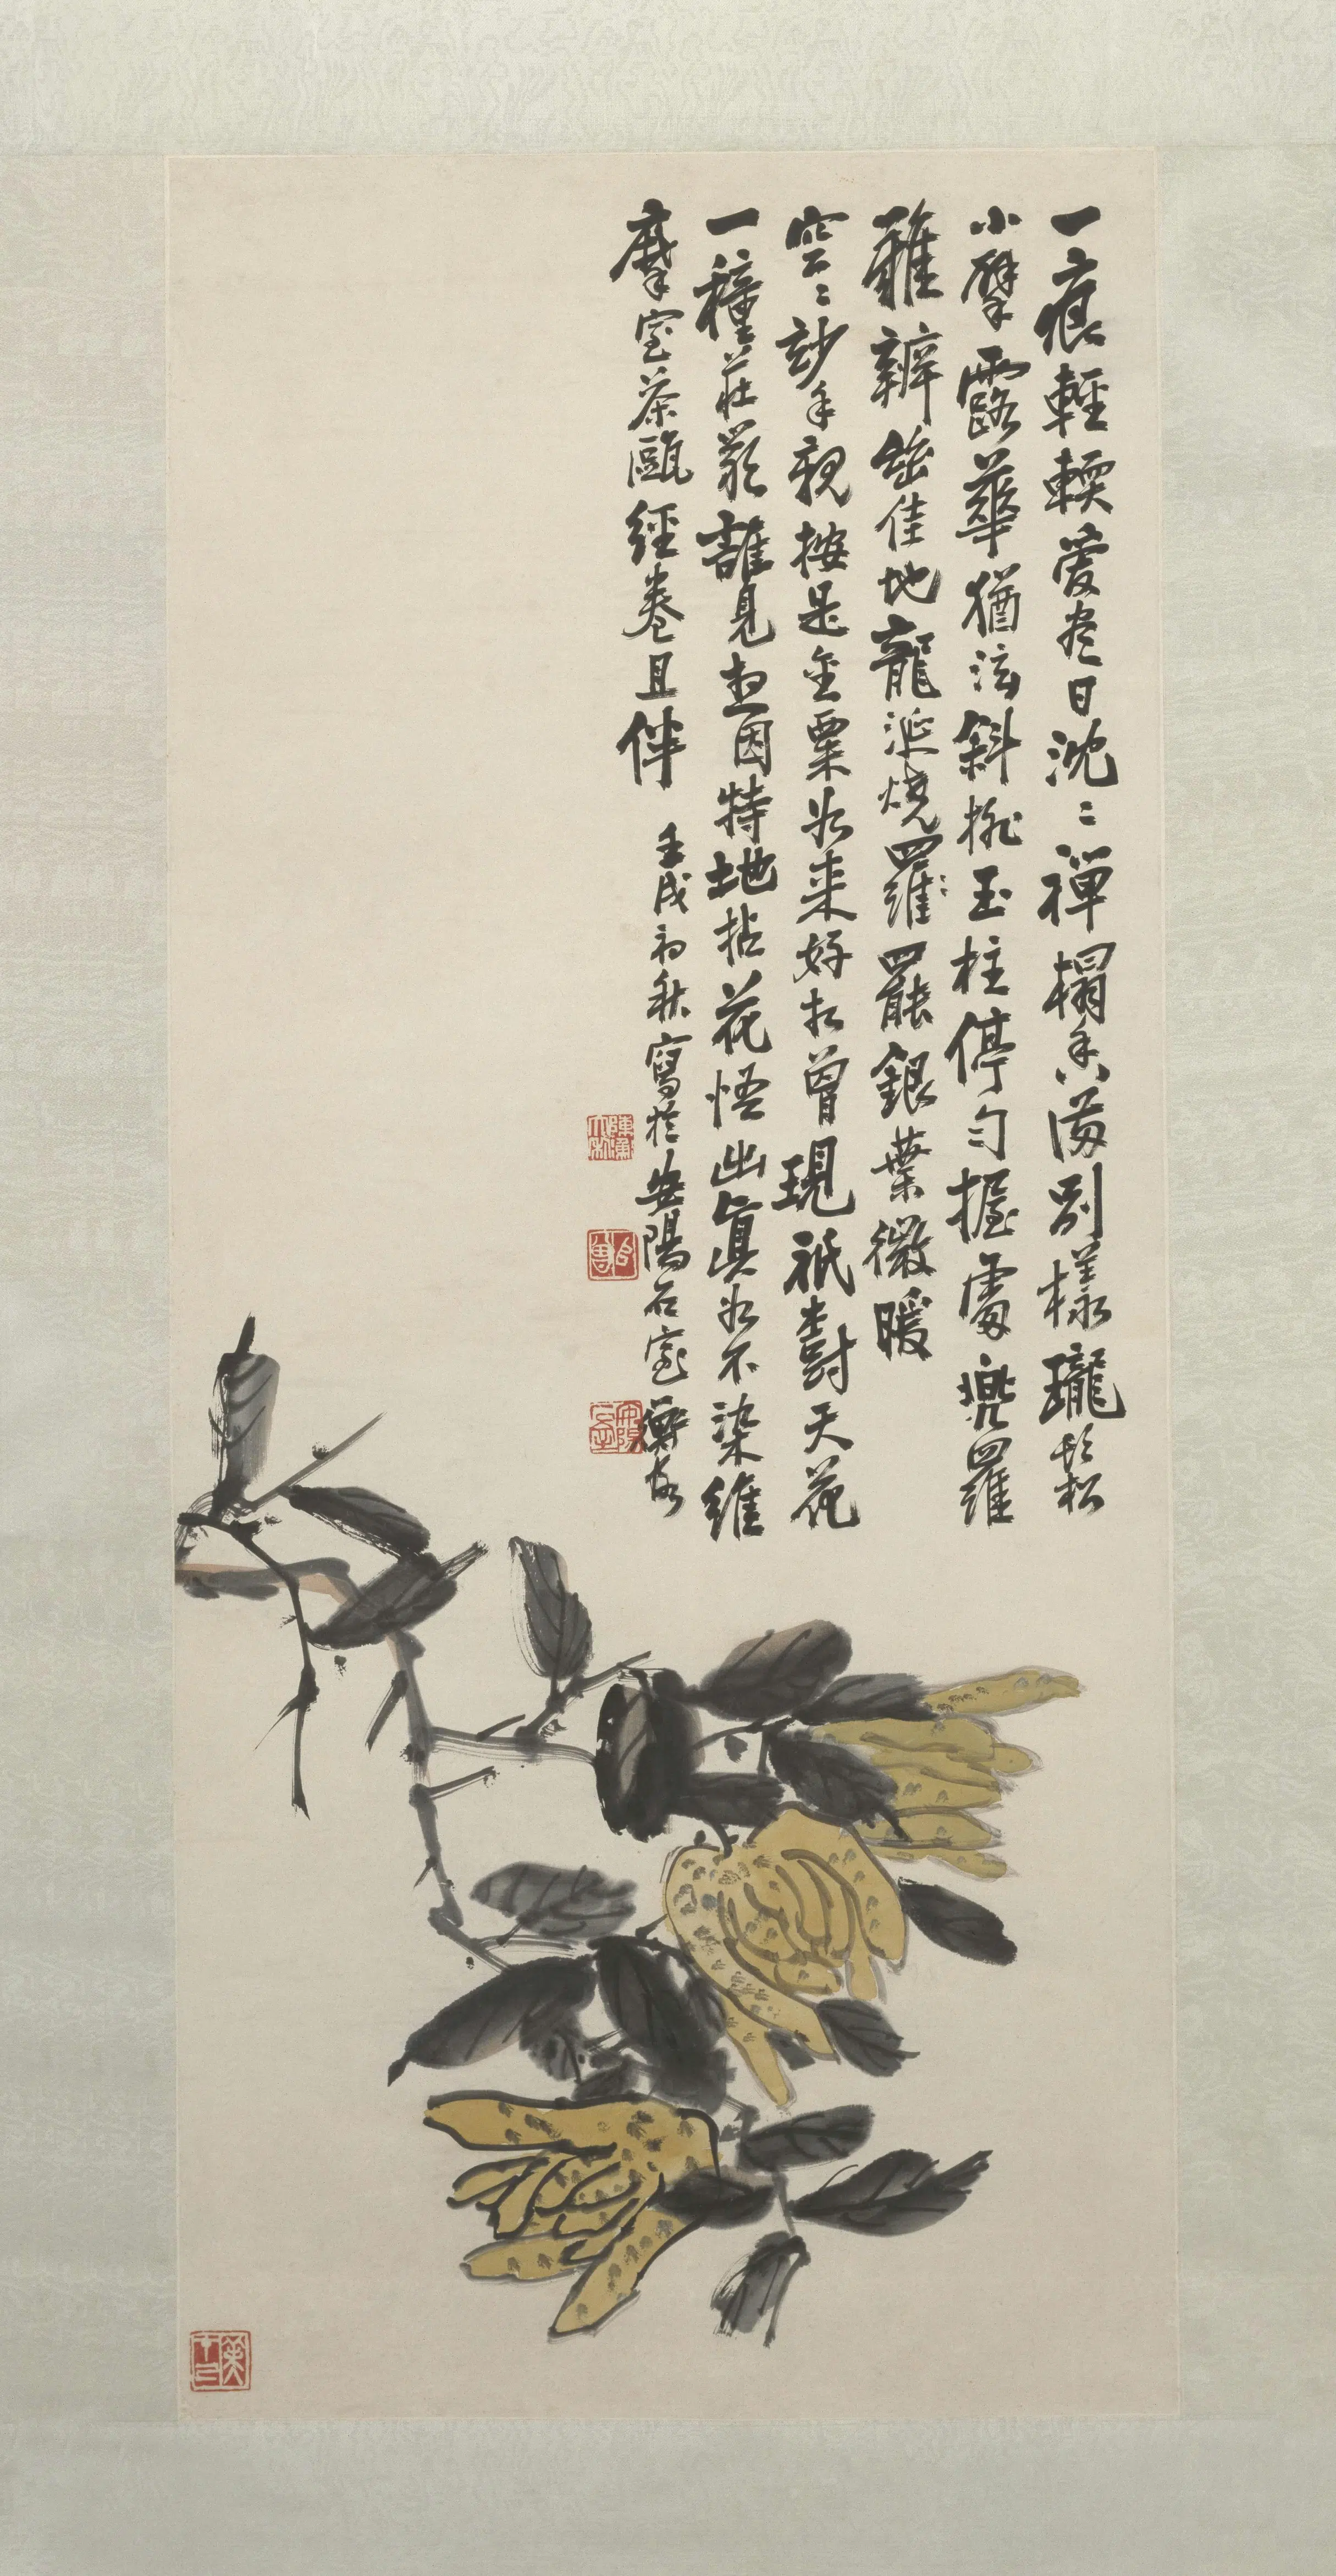 一痕輕輭愛盡日沈〻禪榻香滿別樣瓏鬆
小擘露華猶泫斜挑玉柱停勻握處兜羅
難辨縋佳地龍涎燒羅〻罷銀葉微暖
空〻妙手親按是金粟如來好相曾現祇對天花
一種莊嚴誰見也因特地拈花悟出真如不染維
摩室茶甌經卷且伴
壬戌初秋寫於安陽石室 衡恪